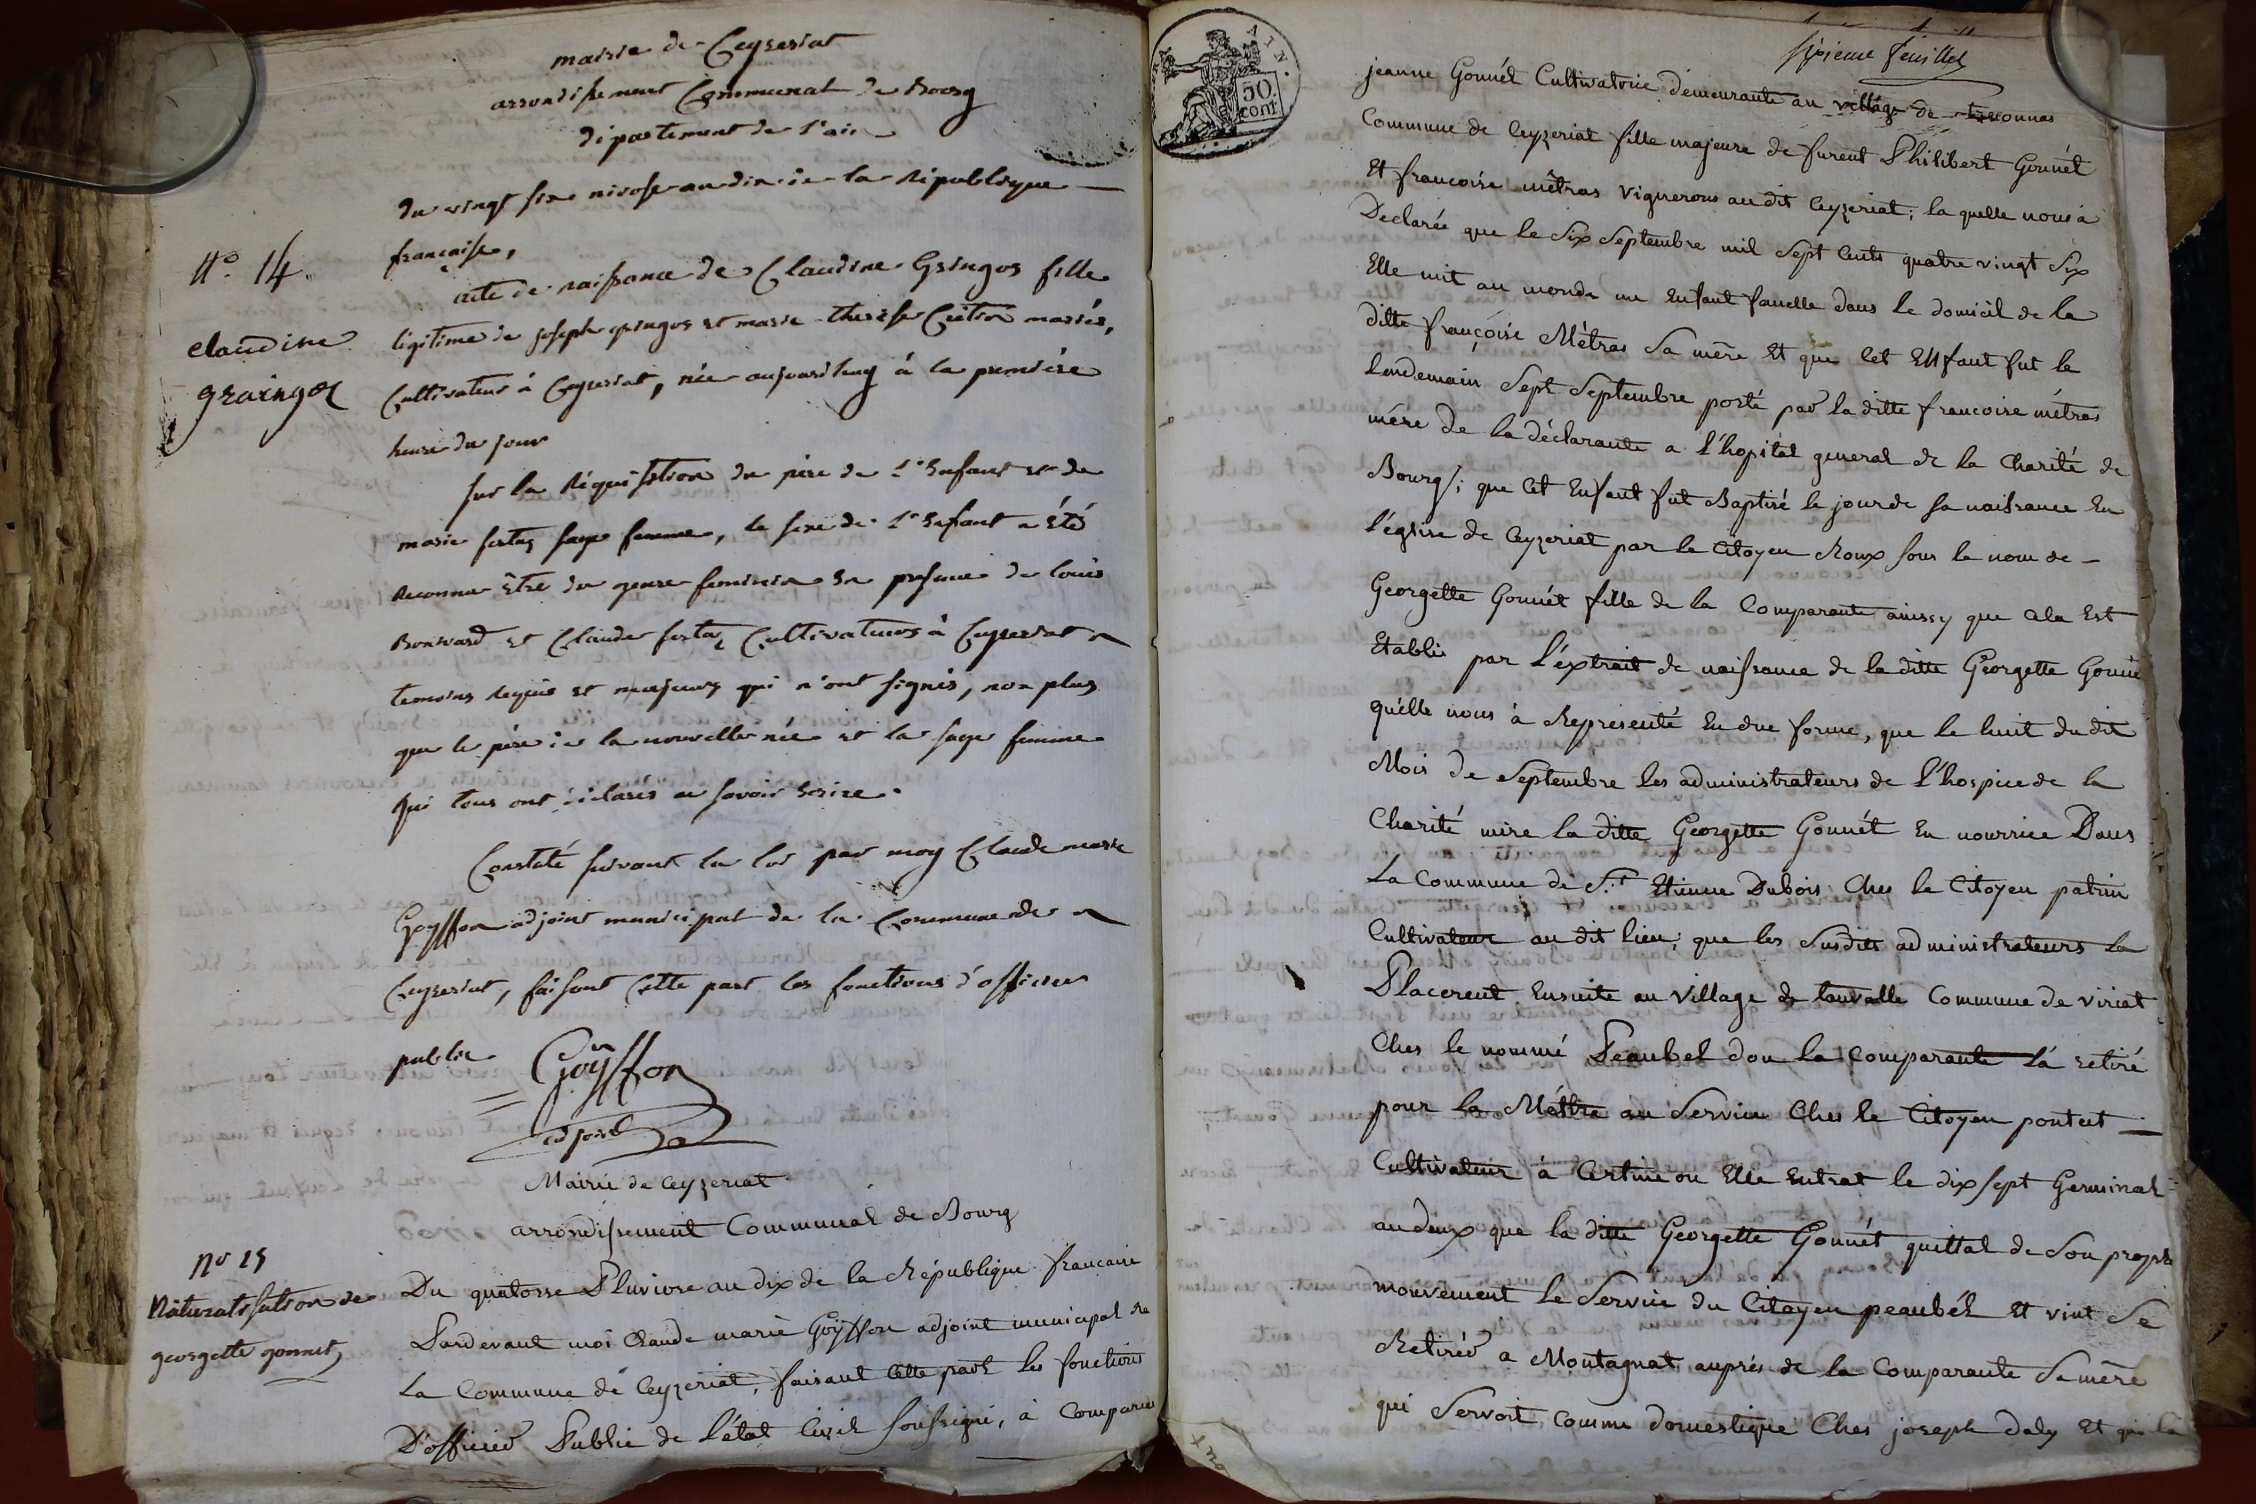 mairie de Ceyzeriat
arrondissement Communal de Bourg
département de l'ain
du vingt six nivose an dix de la République
française,
N°. 14.
claudine
graingos
acte de naissance de Claudine Gringos fille
légitime de joseph gringos et marie therèse mariés,
Cultivateur à Ceyzeriat, née aujourdhuy à la première
heure du jour
sur la Réquisition du père de l'Enfant et de
marie sage femme, le sexe de l'Enfant a été
Reconnu être du genre feminin en presence de louis
Bonvard et Claude Cultivateurs à Ceyzeriat
temoins requis et majeurs qui n'ont signés, non plus
que le père de la nouvelle née et la sage femme
qui tous ont déclarés ne savoir Ecrire.
Constaté suivant la loi par moy Claude marie
Goÿffon adjoint municipal de la Commune de
Ceyzeriat, faisant Cette part les fonctions d'officier
public
Goÿffon
adjoint
Mairie de Ceyzeriat
arrondissement Communal de Bourg
no 15
Naturalisation de
georgette gonnet
Du quatorse Pluviose an dix de la République francaise
Pardevant moi Claude marie Goÿffon adjoint municipal de
La Commune de Ceyzeriat, faisant Cette part les fonctions
D'officier Public de l'état Civil soussigné, à Comparue
AIN.
50
cent
sixieme feuillet
jeanne Gonnét Cultivatrice demeurante au village de
Commune de Ceyzeriat fille majeure de furent Philibert Gonnét
Et francoise mêtras vignerons au dit Ceyzeriat; la quelle nous à
Declarée que le Six Septembre mil Sept Cents quatre vingt Six
Elle mit au monde un Enfant famelle dans le domicil de la
ditte françoise Mètras Sa mère Et que Cet Enfant fut le
lendemain Sept Septembre porté par la ditte francoise métras
mére de la déclarante a l'hopital general de la Charité de
Bourg; que Cet Enfant fut Baptisé le jour de sa naissance En
l'église de Ceyzeriat par le Citoyen Roux sous le nom de -
Georgette Gonnét fille de la Comparante ainssy que Cela Est
Etablie par l'éxtrait de naissance de la ditte Georgette Gonné
qu'elle nous à Représenté En due forme, que le huit du dit
Mois de Septembre les administrateurs de l'hospice de la
Charité mire la ditte Georgette Gonnét En nourrice Dans
La Commune de St Etienne Dubois Ches le Citoyen patrin
Cultivateur au dit lieu; que les Susdits administrateurs la
Placerent Ensuite au Village de tanvalle Commune de viriat
Ches le nommé Peaubel dou la Comparante l'a retiré
pour la Méttre au Service Ches le Citoyen pontet
Cultivateur à Certine ou Elle Entrat le dix sept Germinal
an deux que la ditte Georgette Gonnét quittat de Son propre
mouvement le Service du Citoyen peaubél Et vint Se
Retirér a Montagnat auprés de la Comparante Sa mère
qui Servoit Comme domestique Ches joseph daly Et qui la